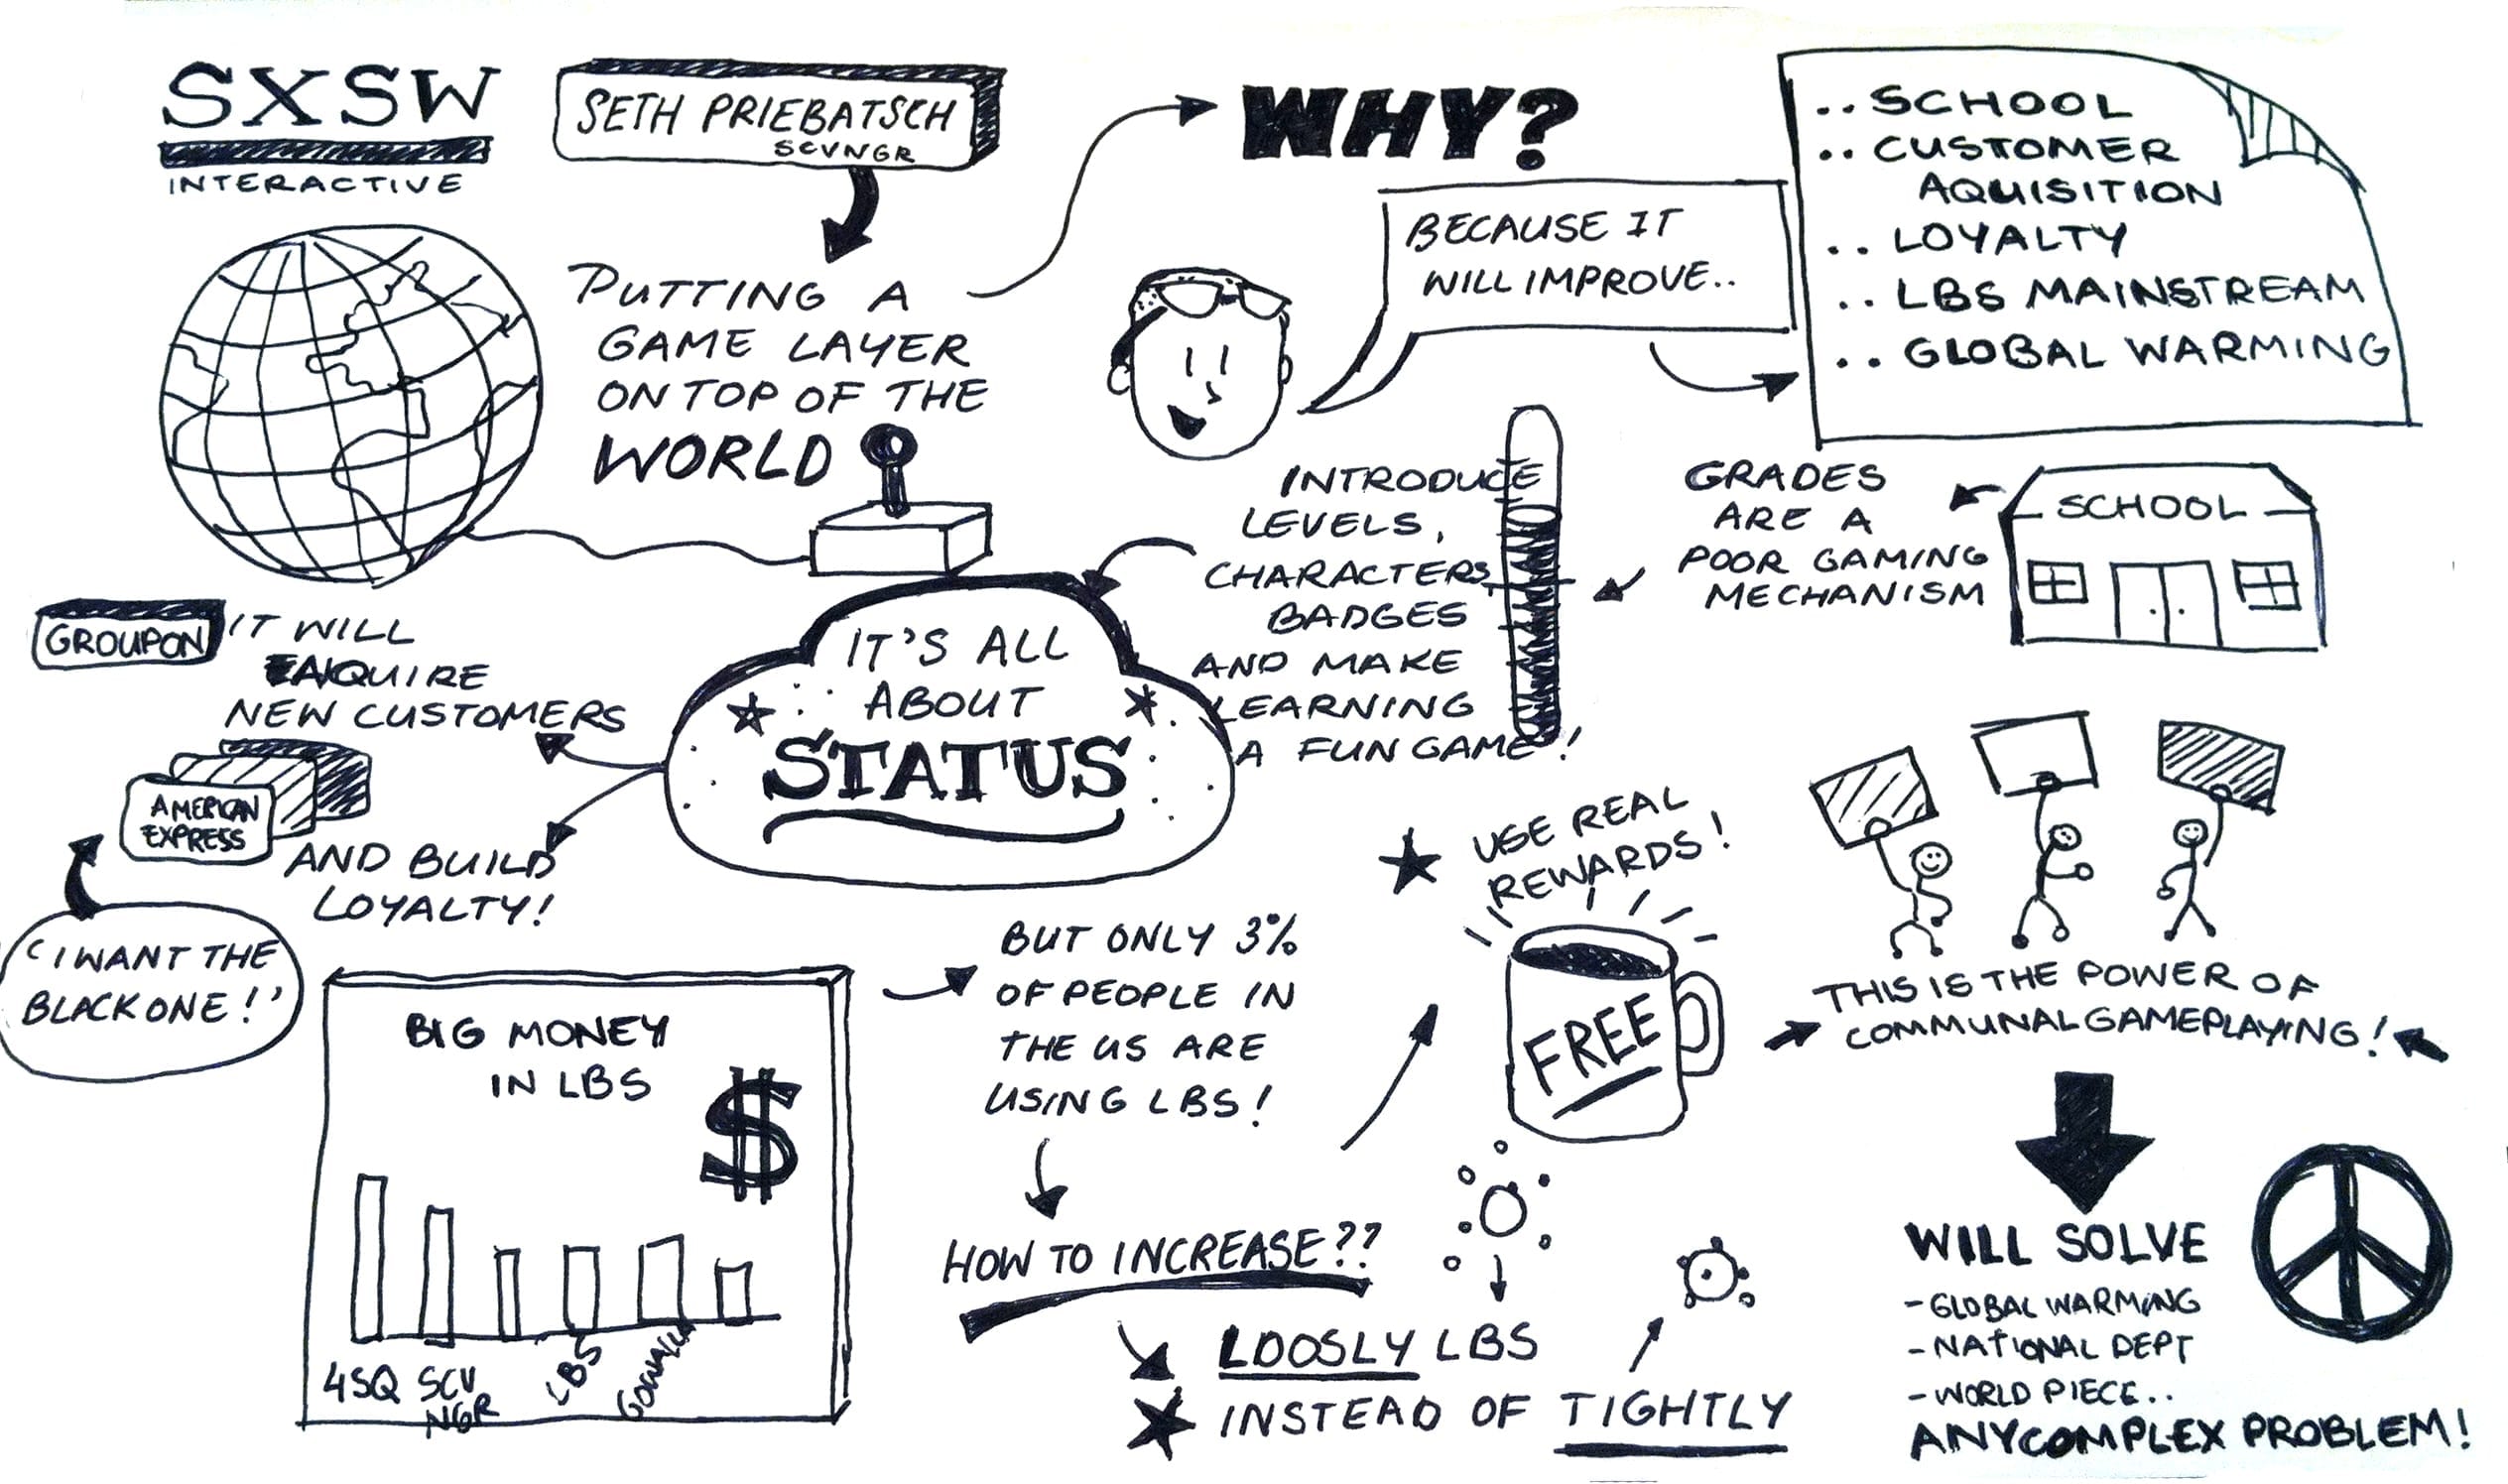 SXSW
INTERACTIVE
SETH PRIEBATSCH
SCVNGR
PUTTING A
GAME LAYER
ON TOP OF THE
WORLD
WHY?
BECAUSE IT
WILL IMPROVE..
.. SCHOOL
.. CUSTOMER
AQUISITION
.. LOYALTY
.. LBS MAINSTREAM
.. GLOBAL WARMING
SCHOOL
GRADES
ARE A
POOR GAMING
MECHANISM
INTRODUCE
LEVELS,
CHARACTERS,
BADGES
AND MAKE
LEARNING
A FUN GAME!
IT'S ALL
ABOUT
STATUS
GROUPON
IT WILL
AQUIRE
NEW CUSTOMERS
AMERICAN
EXPRESS
AND BUILD
LOYALTY!
'I WANT THE
BLACK ONE!'
BIG MONEY
IN LBS
$
4SQ SCV
NGR
LBS
BUT ONLY 3%
OF PEOPLE IN
THE US ARE
USING LBS!
HOW TO INCREASE??
USE REAL
REWARDS!
FREE
LOOSLY LBS
INSTEAD OF TIGHTLY
THIS IS THE POWER OF
COMMUNAL GAMEPLAYING!
WILL SOLVE
- GLOBAL WARMING
- NATIONAL DEPT
- WORLD PIECE..
ANYCOMPLEX PROBLEM!